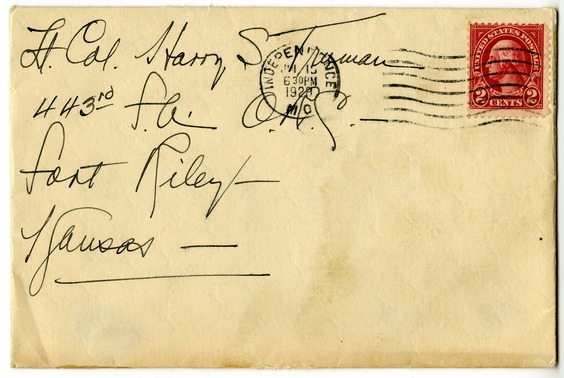 Lt. Col. Harry S. Truman
443rd F.A. O.R.C. —
Fort Riley —
Kansas —
INDEPENDENCE
15
6 30PM
MO
UNITED STATES POSTAGE
2 CENTS 2